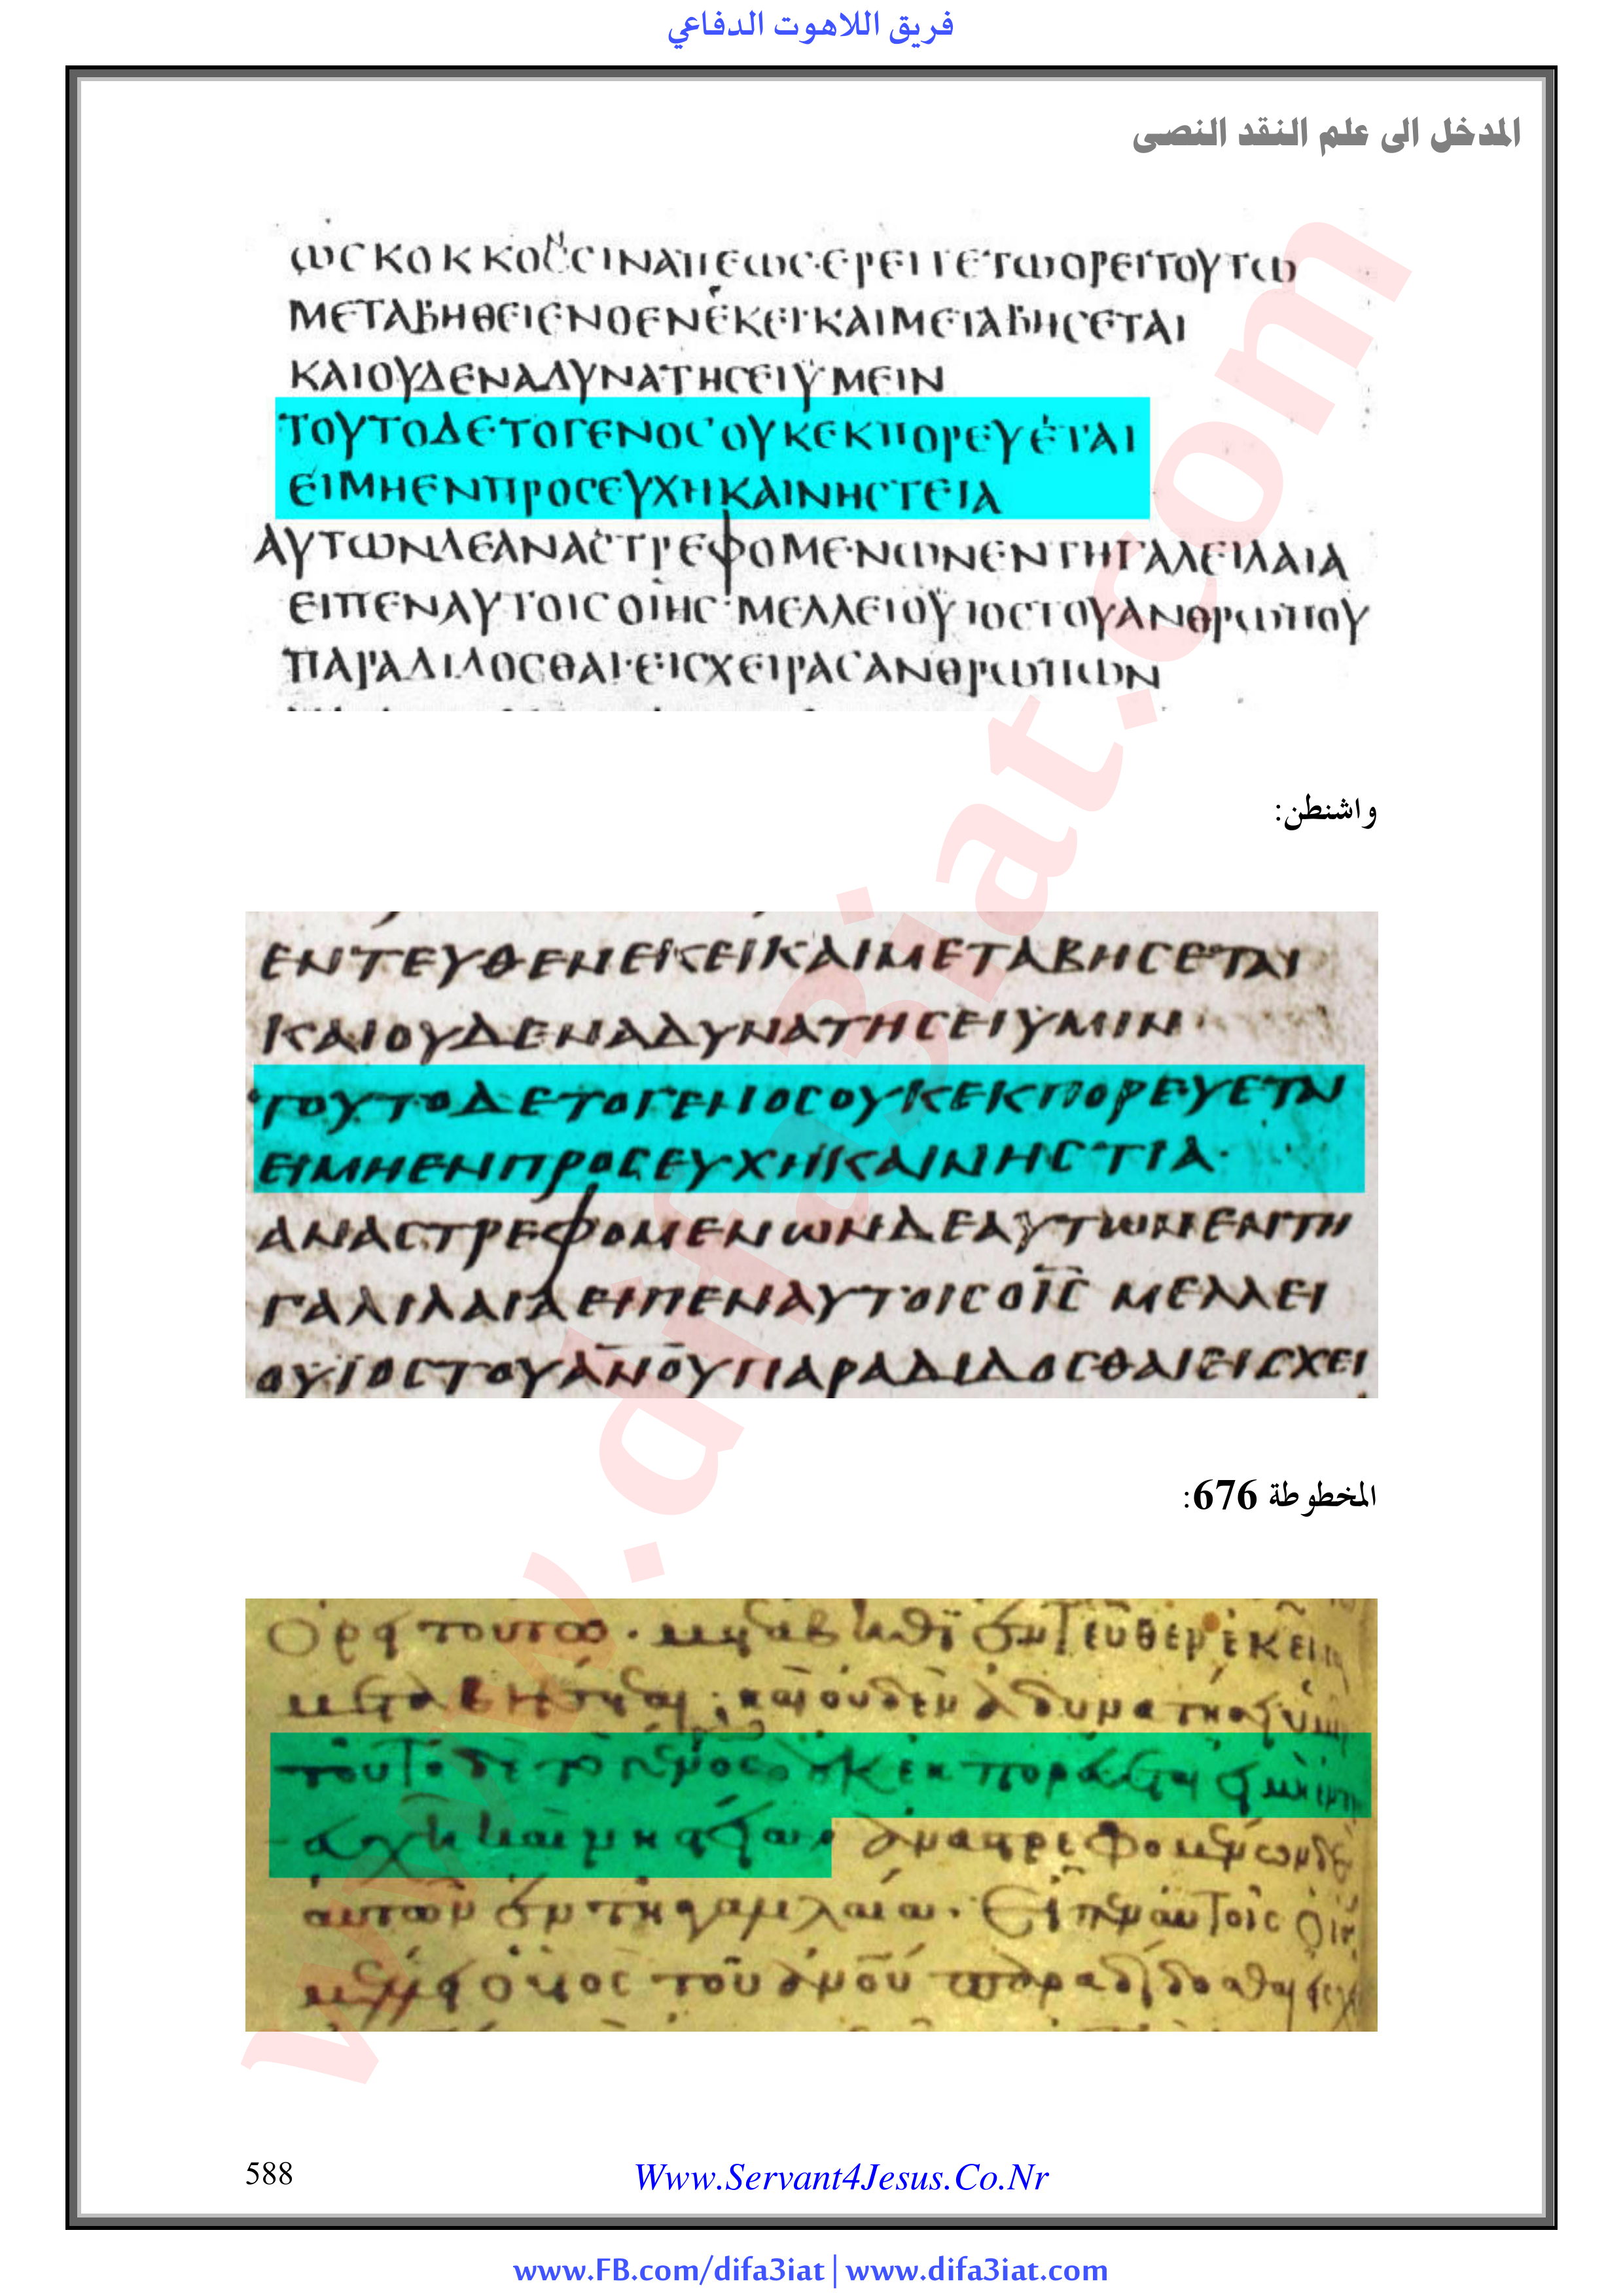 فريق اللاهوت الدفاعي
المدخل الى علم النقد النصى
ⲱⲥⲕⲟⲕⲕⲟⲥⲥⲓⲛⲁⲡⲉⲱⲥ·ⲉⲣⲉⲓⲧⲉⲧⲱⲟⲣⲉⲓⲧⲟⲩⲧⲱ
ΜΕΤΑΒΗΘΕΙΕΝΘΕΝΕΚΕΙ·ΚΑΙΜΕΤΑΒΗCΕΤΑΙ
ΚΑΙΟΥΔΕΝΑΔΥΝΑΤΗCΕΙΫΜΕΙΝ
ΤΟΥΤΟΔΕΤΟΓΕΝΟCΟΥΚΕΚΠΟΡΕΥΕΤΑΙ
ΕΙΜΗΕΝΠΡΟCΕΥΧΗΚΑΙΝΗCΤΕΙΑ
ΑΥΤΩΝΔΕΑΝΑCΤΡΕΦΟΜΕΝΩΝΕΝΤΗΓΑΛΕΙΛΑΙΑ
ΕΙΠΕΝΑΥΤΟΙCΟΙΗC·ΜΕΛΛΕΙΟΫΙΟCΤΟΥΑΝΘΡΩΠΟΥ
ΠΑΡΑΔΙΔΟCΘΑΙ·ΕΙCΧΕΙΡΑCΑΝΘΡΩΠΩΝ
واشنطن:
ΕΝΤΕΥΘΕΝΕΚΕΙΚΑΙΜΕΤΑΒΗCΕΤΑΙ
ΚΑΙΟΥΔΕΝΑΔΥΝΑΤΗCΕΙΫΜΙΝ
ΤΟΥΤΟΔΕΤΟΓΕΝΟCΟΥΚΕΚΠΟΡΕΥΕΤΑΙ
ΕΙΜΗΕΝΠΡΟCΕΥΧΗΚΑΙΝΗCΤΙΑ·
ΑΝΑCΤΡΕΦΟΜΕΝΩΝΔΕΑΥΤΩΝΕΝΤΗ
ΓΑΛΙΛΑΙΑΕΙΠΕΝΑΥΤΟΙCΟΙ̅C̅ ΜΕΛΛΕΙ
ΟΥΪΟCΤΟΥΑ̅Ν̅Ο̅Υ̅ΠΑΡΑΔΙΔΟCΘΑΙΕΙCΧΕΙ
المخطوطة 676:
www.difa3iat.com
588
Www.Servant4Jesus.Co.Nr
www.FB.com/difa3iat | www.difa3iat.com